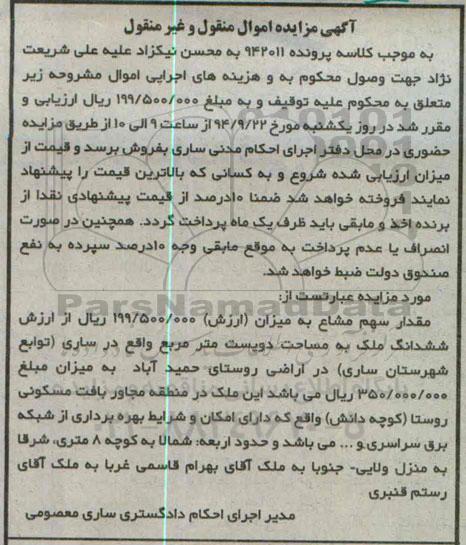 آگهی مزایده اموال منقول و غیر منقول
به موجب کلاسه پرونده ۹۴۲۰۱۱ به محسن نیکزاد علیه علی شریعت
نژاد جهت وصول محکوم به و هزینه های اجرایی اموال مشروحه زیر
متعلق به محکوم علیه توقیف و به مبلغ ۱۹۹/۵۰۰/۰۰۰ ریال ارزیابی و
مقرر شد در روز یکشنبه مورخ ۹۴/۹/۲۲ از ساعت ۹ الی ۱۰ از طریق مزایده
حضوری در محل دفتر اجرای احکام مدنی ساری بفروش برسد و قیمت از
میزان ارزیابی شده شروع و به کسانی که بالاترین قیمت را پیشنهاد
نمایند فروخته خواهد شد ضمنا ۱۰درصد از قیمت پیشنهادی نقدا از
برنده اخذ و مابقی باید ظرف یک ماه پرداخت گردد. همچنین در صورت
انصراف یا عدم پرداخت به موقع مابقی وجه ۱۰درصد سپرده به نفع
صندوق دولت ضبط خواهد شد.
مورد مزایده عبارتست از:
ParsNamadData
مقدار سهم مشاع به میزان (ارزش) ۱۹۹/۵۰۰/۰۰۰ ریال از ارزش
ششدانگ ملک به مساحت دویست متر مربع واقع در ساری (توابع
شهرستان ساری) در اراضی روستای حمید آباد به میزان مبلغ
۳۵۰/۰۰۰/۰۰۰ ریال می باشد این ملک در منطقه مجاور بافت مسکونی
روستا (کوچه دانش) واقع که دارای امکان و شرایط بهره برداری از شبکه
برق سراسری و ... می باشد و حدود اربعه: شمالا به کوچه ۸ متری، شرقا
به منزل ولایی- جنوبا به ملک آقای بهرام قاسمی غربا به ملک آقای
رستم قنبری
مدیر اجرای احکام دادگستری ساری معصومی